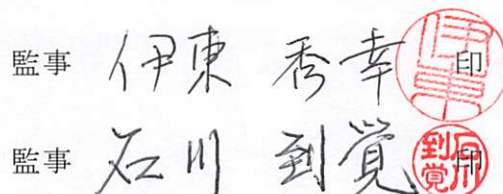 監事 伊東 秀幸 印
監事 石川 到覚 印